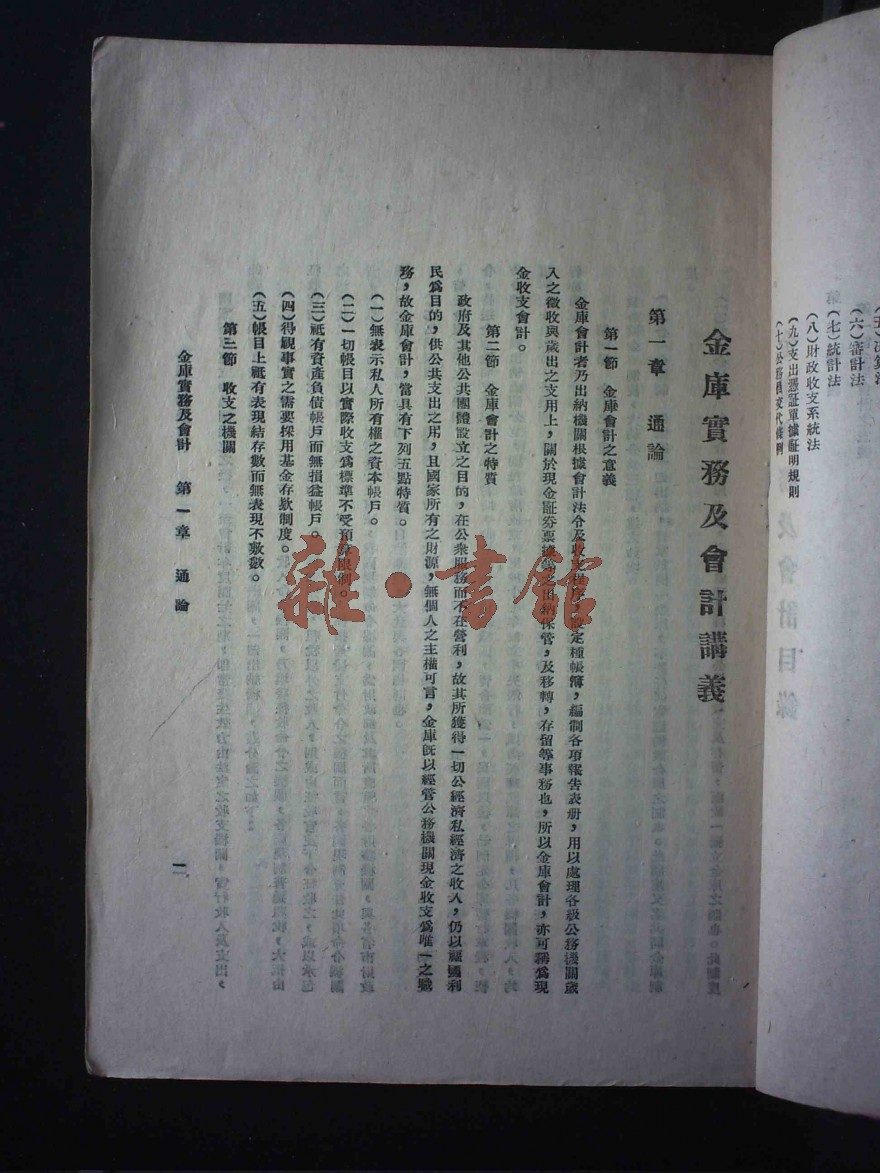 (六)審計法
(七)統計法
(八)財政收支系統法
(九)支出憑証單據証明規則
(十)公務員交代條例
金庫實務及會計講義
第一章 通論
第一節 金庫會計之意義
金庫會計者乃出納機關根據會計法令及收支程序,設定種帳簿,編制各項報告表册,用以處理各級公務機關歲
入之徵收與歲出之支用上,關於現金証券票據等之出納保管,及移轉,存留等事務也,所以金庫會計,亦可稱爲現
金收支會計。
第二節 金庫會計之特質
政府及其他公共團體設立之目的,在公衆服務而不在營利,故其所獲得一切公經濟私經濟之收入,仍以福國利
民爲目的,供公共支出之用,且國家所有之財源,無個人之主權可言,金庫旣以經管公務機關現金收支爲唯一之職
務,故金庫會計,當具有下列五點特質。
(一)無表示私人所有權之資本帳戶。
(二)一切帳目以實際收支爲標準不受預算限制。
(三)祗有資產負債帳戶而無損益帳戶。
(四)得視事實之需要採用基金存欵制度。
(五)帳目上祗有表現結存數而無表現不敷數。
第三節 收支之機關
金庫實務及會計 第一章 通論
雜·書館